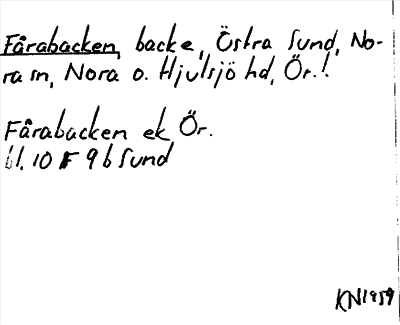 Fårabacken, backe, Östra Sund, No-
ra sn, Nora o. Hjulsjö hd, Ör.!
Fårabacken ek Ör.
bl. 10 F 9 b Sund
KN 1959